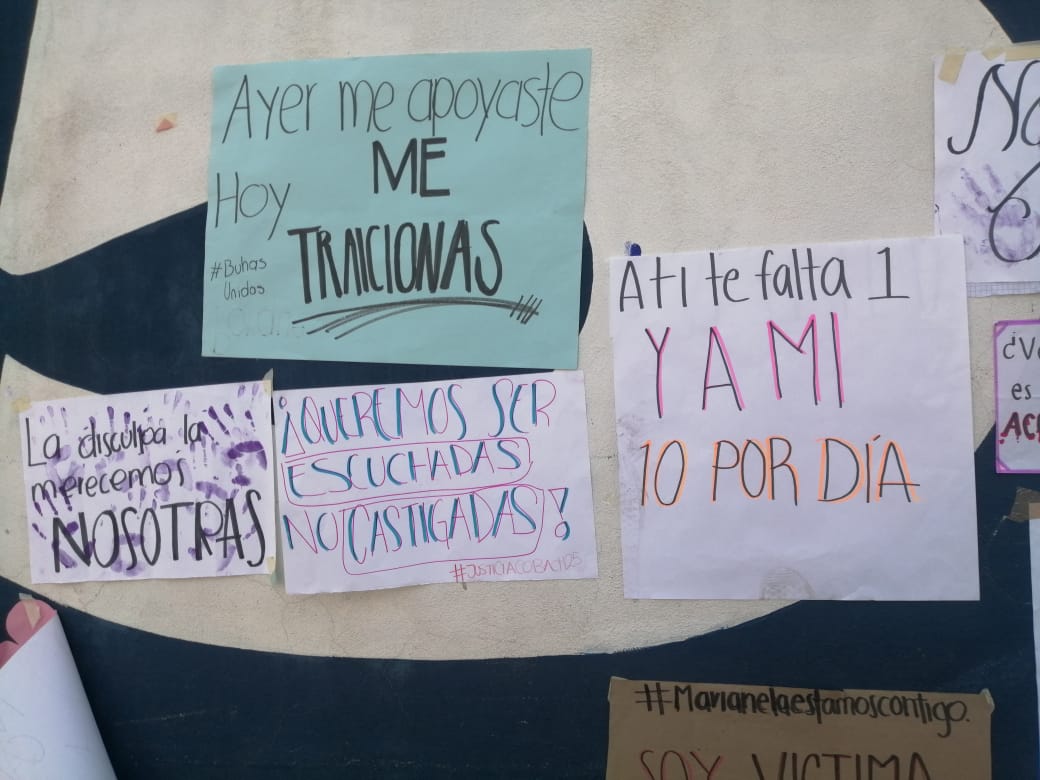 Ayer me apoyaste
Hoy
ME
TRAICIONAS
#Buhas
Unidos
La disculpa la
merecemos
NOSOTRAS
¡QUEREMOS SER
ESCUCHADAS
NO CASTIGADAS!
#JUSTICIACOBAJ25
A ti te falta 1
Y A MI
10 POR DÍA
No
¿V
es
AC
#Marianelaestamoscontigo.
SOY VICTIMA